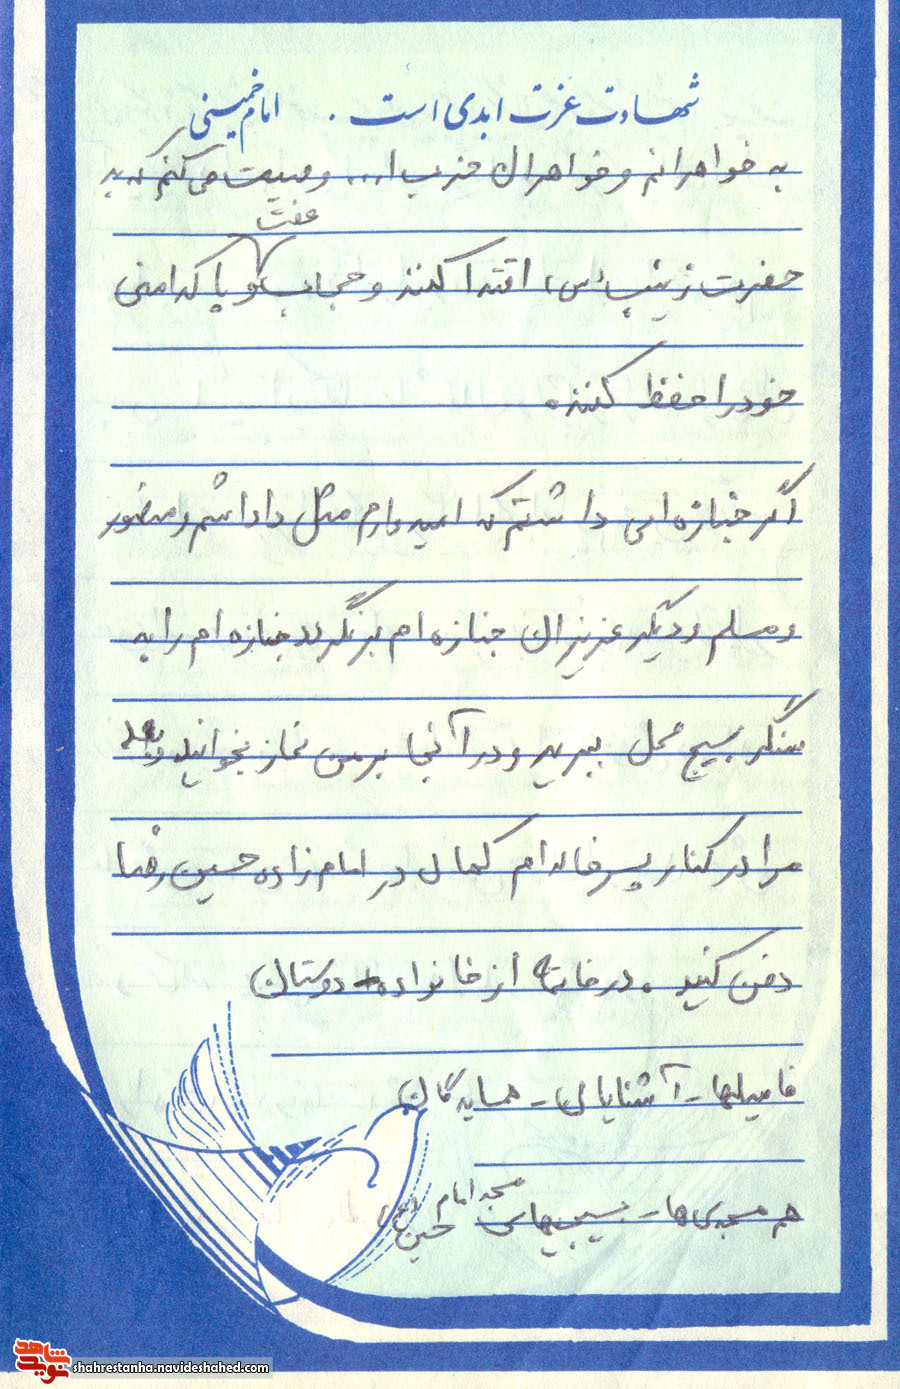 شهادت عزت ابدی است. امام خمینی
به خواهرانم و خواهران حزب ا... وصیت می کنم که به
عفت
حضرت زینب (س) اقتدا کنند و حجاب و پاکدامنی
خود را حفظ کنند.
اگر جنازه ای داشتم که امیدوارم مثل داداشم و منصور
و مسلم و دیگر عزیزان جنازه ام برنگردد جنازه ام را به
سنگر بسیج محل ببرید و در آنجا بر من نماز بخوانید و بعد
مرا در کنار پسرخاله ام کمال در امامزاده حسین رضا
دفن کنید. در خاتمه از خانواده - دوستان
فامیلها - آشنایان - همسایه گان
هم مسجدی ها - بسیجیهای مسجد امام
حسین (ع)
شاهد
نوید
shahrestanha.navideshahed.com